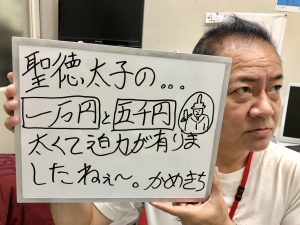 聖徳太子の...
一万円と五千円
太くて迫力が有りま
したねぇ〜。かめきち